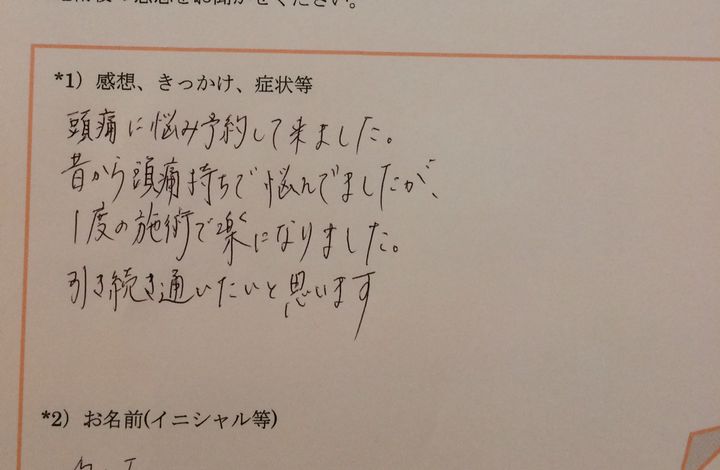 感想をお聞かせください。
*1）感想、きっかけ、症状等
頭痛に悩み予約して来ました。
昔から頭痛持ちで悩んでましたが、
1度の施術で楽になりました。
引き続き通いたいと思います
*2）お名前(イニシャル等)